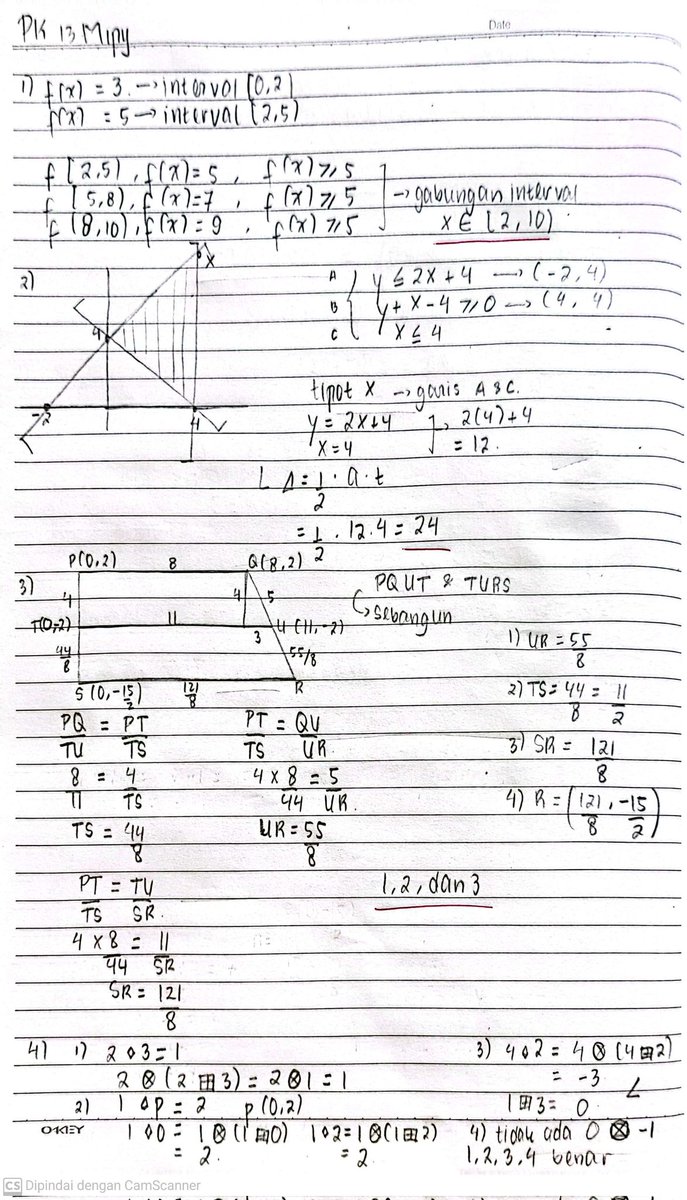 Date
PK 13 Mipy
1) f(x) = 3. → interval [0,2)
f(x) = 5 → interval [2,5)
f [2,5), f(x)=5, f(x) ⩾ 5
f [5,8), f(x)=7, f(x) ⩾ 5 → gabungan interval
f [8,10), f(x)=9, f(x) ⩾ 5 x ∈ [2,10)
2)
X
4
-2 4
A y ≤ 2x+4 → (-2,4)
B y + x-4 ⩾ 0 → (4, 4)
C x ≤ 4
tipot x → garis A & C.
y = 2x+4 → 2(4)+4
x=4 = 12.
L Δ = 1/2 · a.t
= 1/2 . 12.4 = 24
3) P(0,2) 8 Q(8,2)
4 4 5
T(0,-2) 11 3 U(11,-2)
44/8 55/8
S (0,-15/2) 121/8 R
PQUT & TURS
↳ sebangun
1) UR = 55/8
2) TS = 44/8 = 11/2
3) SR = 121/8
4) R = (121/8, -15/2)
PQ/TU = PT/TS PT/TS = QU/UR.
8/11 = 4/TS 4 × 8/44 = 5/UR.
TS = 44/8 UR = 55/8
PT/TS = TU/SR. 1, 2, dan 3
4 × 8/44 = 11/SR
SR = 121/8
4) 1) 2 ◊ 3 = 1
2 ⊗ (2 ⊞ 3) = 2 ⊗ 1 = 1
2) 1 ◊ p = 2 p (0,2)
1 ◊ 0 = 1 ⊗ (1 ⊞ 0) 1 ◊ 2 = 1 ⊗ (1 ⊞ 2)
= 2. = 2
3) 4 ◊ 2 = 4 ⊗ (4 ⊞ 2)
= -3
1 ⊞ 3 = 0
4) tidak ada 0 ⊗ -1
1, 2, 3, 4 benar
OKEY
CS Dipindai dengan CamScanner